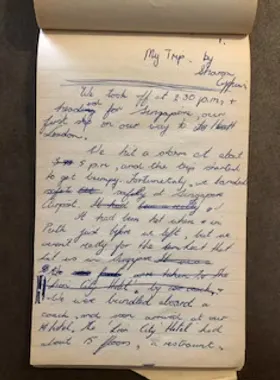 1.
My Trip. by
Sharon
We took off at 2.30 p.m, +
headed for Singapore, our
first stop on our way to
London.
We hit a storm at about
5 p.m, and the trip started
to get bumpy. Fortunately, we landed
safely at Singapore
Airport.
It had been hot when in
Perth just before we left, but we
weren't ready for the that
hit us in Singapore
were taken to the
'Lion City Hotel', by coach,
We were bundled aboard a
coach, and soon arrived at our
hotel. The 'Lion City Hotel' had
about 15 floors, a restaurant,